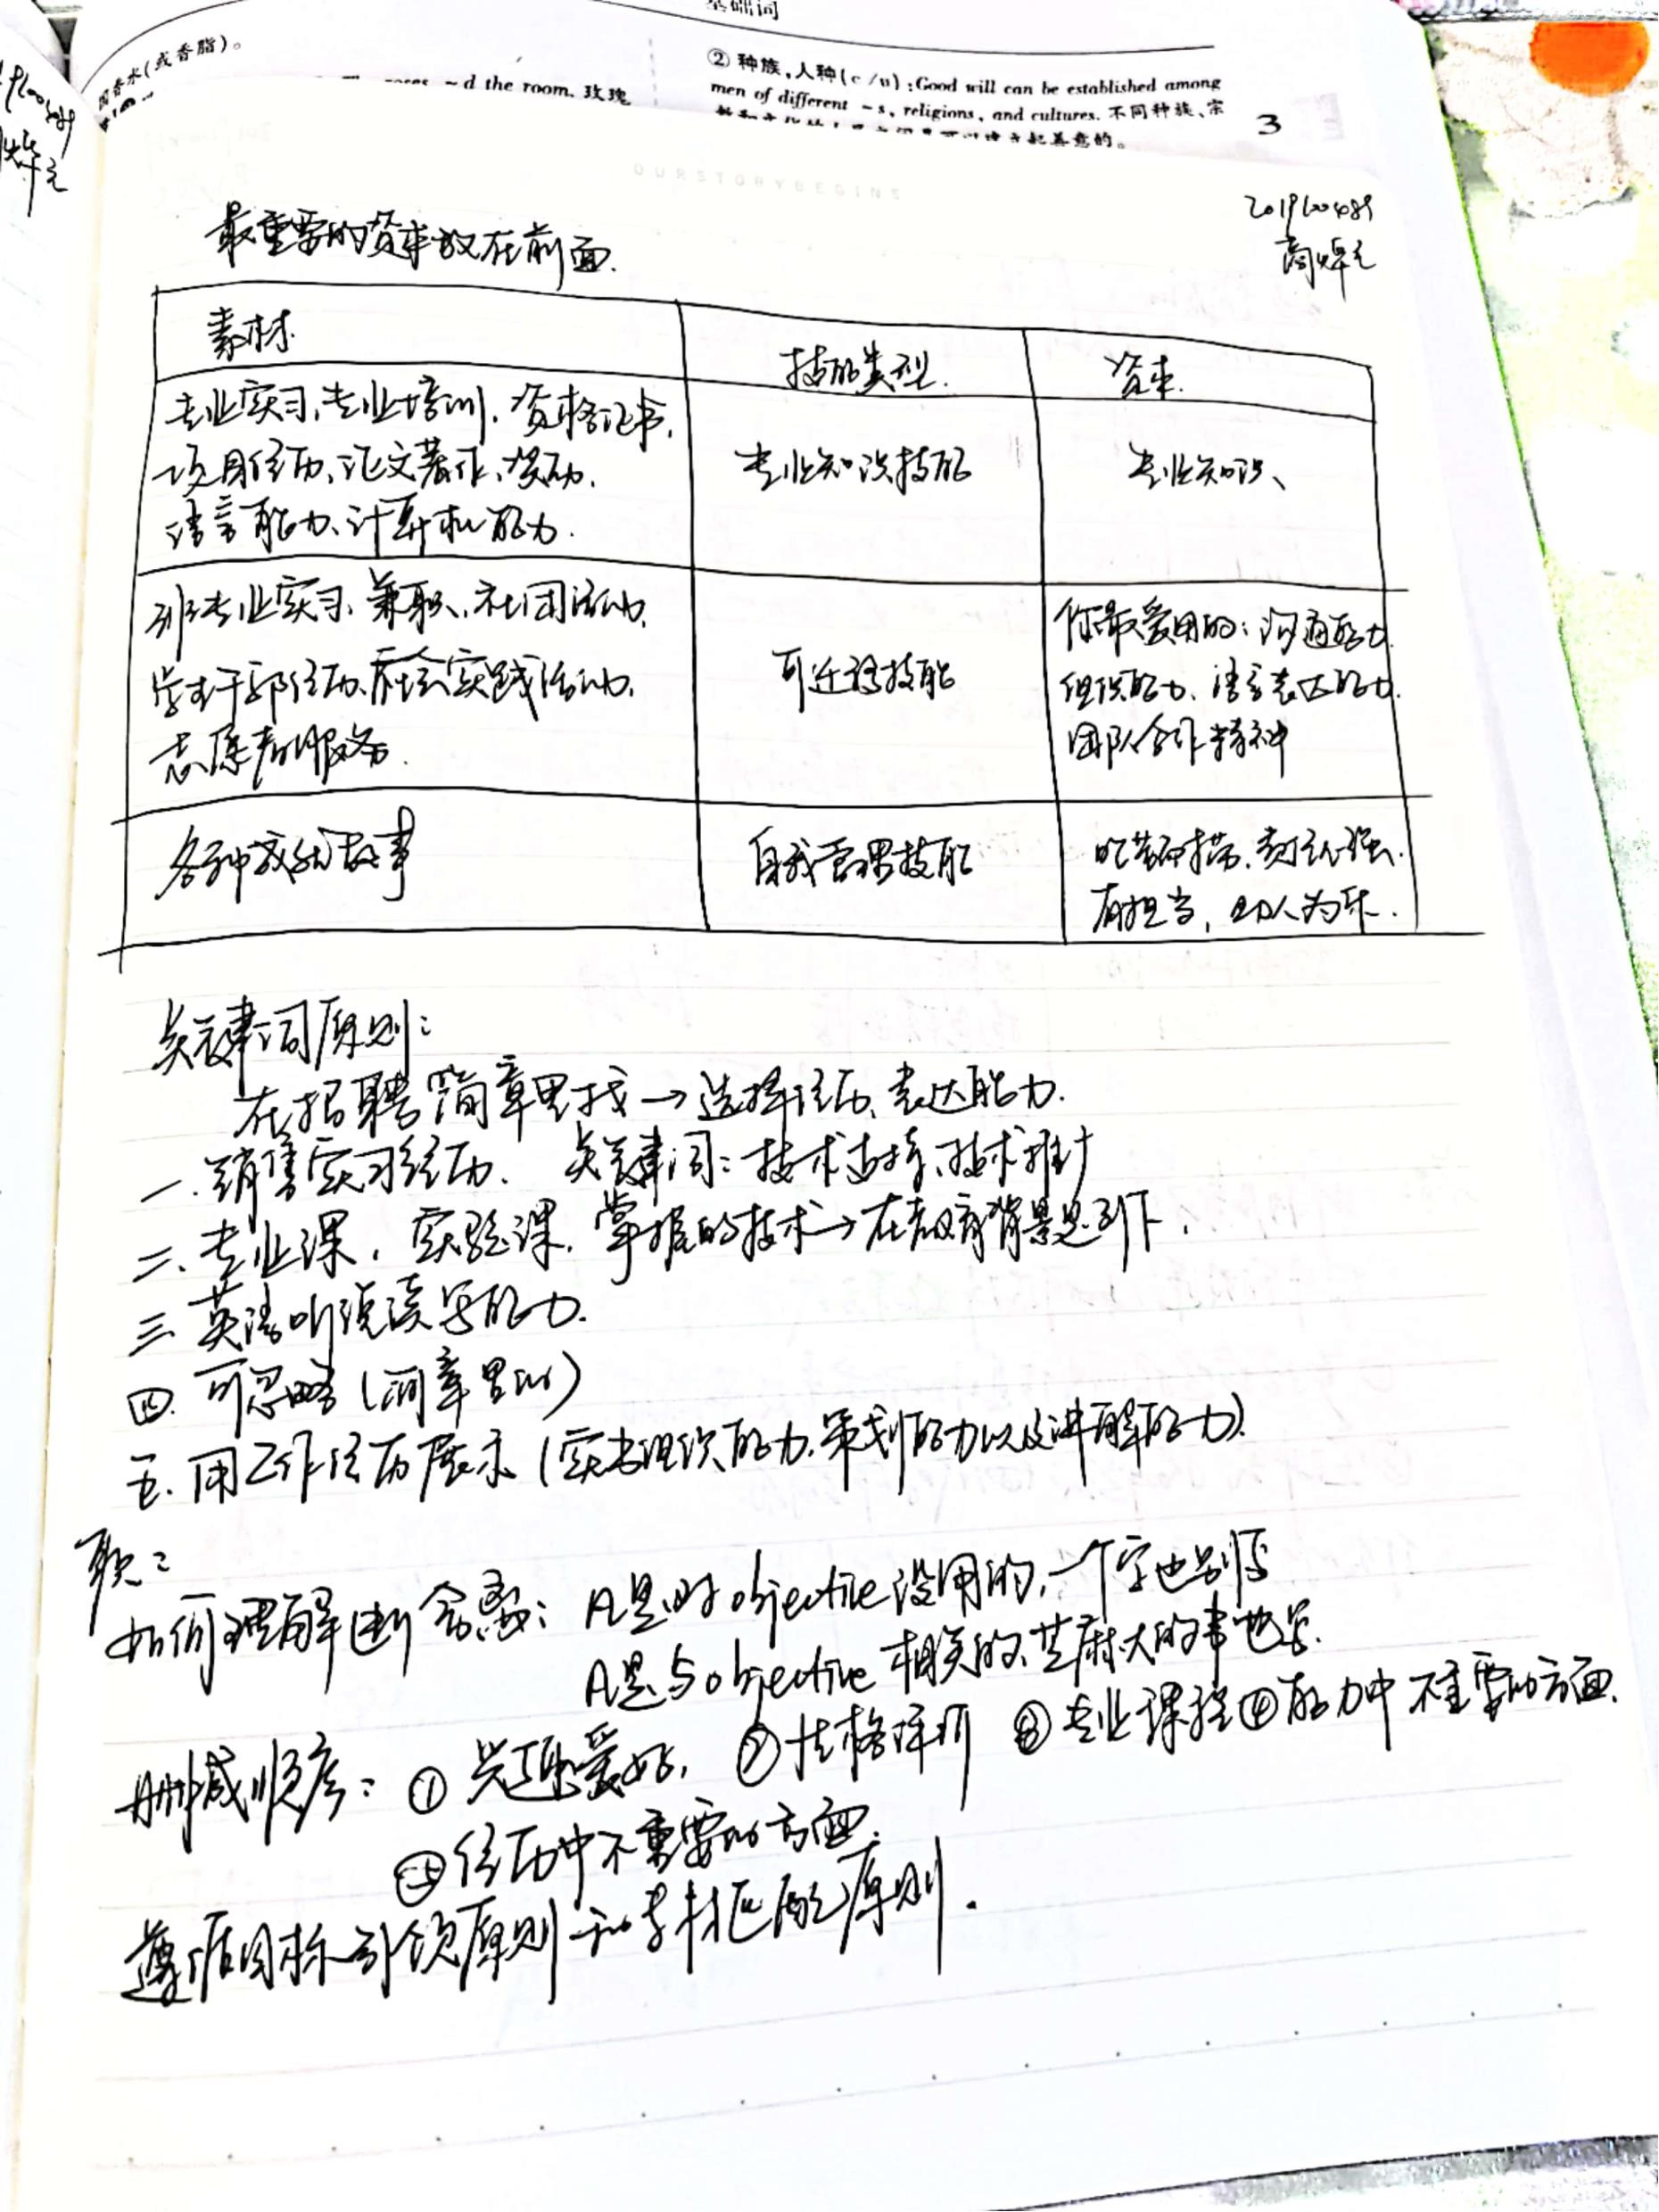 基础词
国香水(或香脂)。
~d the room. 玫瑰
② 种族,人种(c/u):Good will can be established among
men of different ~s, religions, and cultures. 不同种族、宗
3
OURSTORYBEGINS
最重要的资本放在前面.
素材.
技能类型.
资本.
专业实习,专业培训,资格证书,
项目经历,论文著作,奖励,
语言能力、计算机能力.
专业知识技能
专业知识、
非专业实习、兼职、社团活动,
学生干部经历、社会实践活动,
志愿者服务.
可迁移技能
你最受用的:沟通能力
组织能力、语言表达能力.
团队合作精神
各种成就故事
自我管理技能
吃苦耐劳,责任心强.
有担当,助人为乐.
关键词原则:
在招聘简章里找→选择经历、表达能力.
一.销售实习经历、 关键词:技术支持、技术推广
二、专业课,实验课,掌握的技术→在教育背景里列下,
三.英语听说读写能力.
四.可忽略(简章里的)
五.用工作经历展示(突出组织能力.策划能力以及讲解能力).
如何理解断舍离:凡是对objective没用的,一个字也别写
凡是与objective相关的、芝麻大的事也写.
删减顺序:① 兴趣爱好, ②性格评价 ③专业课程④能力中不重要的方面.
⑤经历中不重要的方面.
遵循目标引领原则和素材匹配原则.